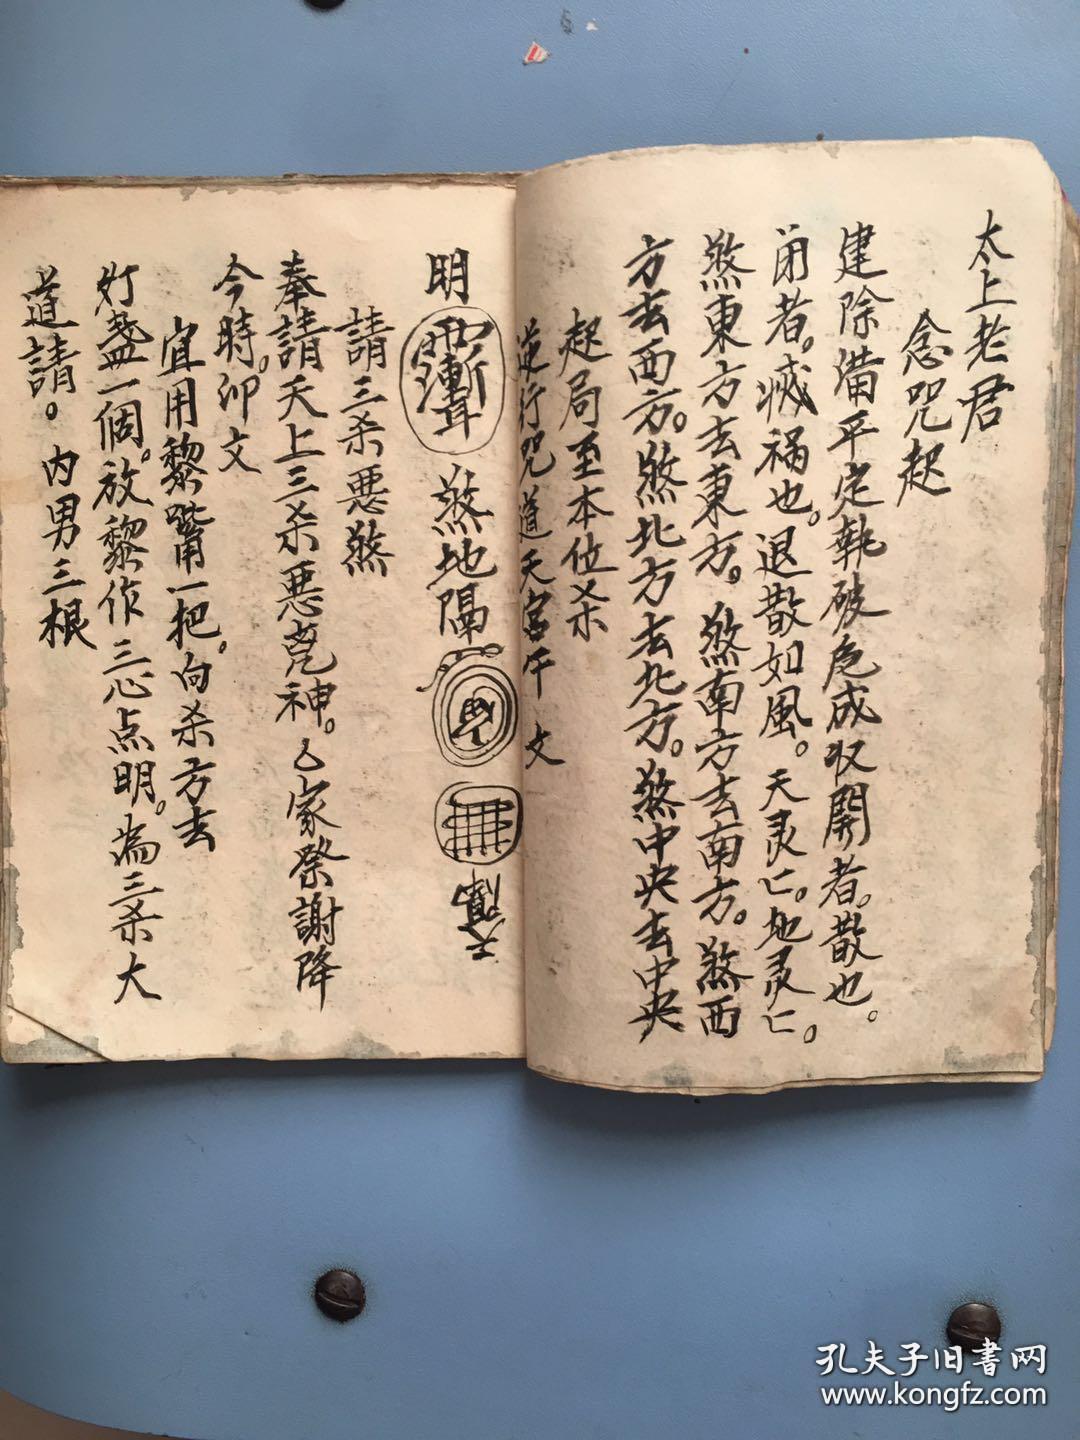 太上老君
念咒起
建除满平定執破危成収開者。散也。
闭者。滅祸也。退散如風。天灵匕。地灵匕。
煞東方去東方。煞南方去南方。煞西
方去西方。煞北方去北方。煞中央去中央
起局至本位杀
逆行咒道天宫午文
明
煞地隔。
請三杀悪煞
奉請天上三杀悪凴神。乙家祭謝降
今時。卯文
宜用黎嘴一把。向杀方去
灯盏一個。放黎作三心点明。為三杀大
道請。内男三根
孔夫子旧書网
www.kongfz.com